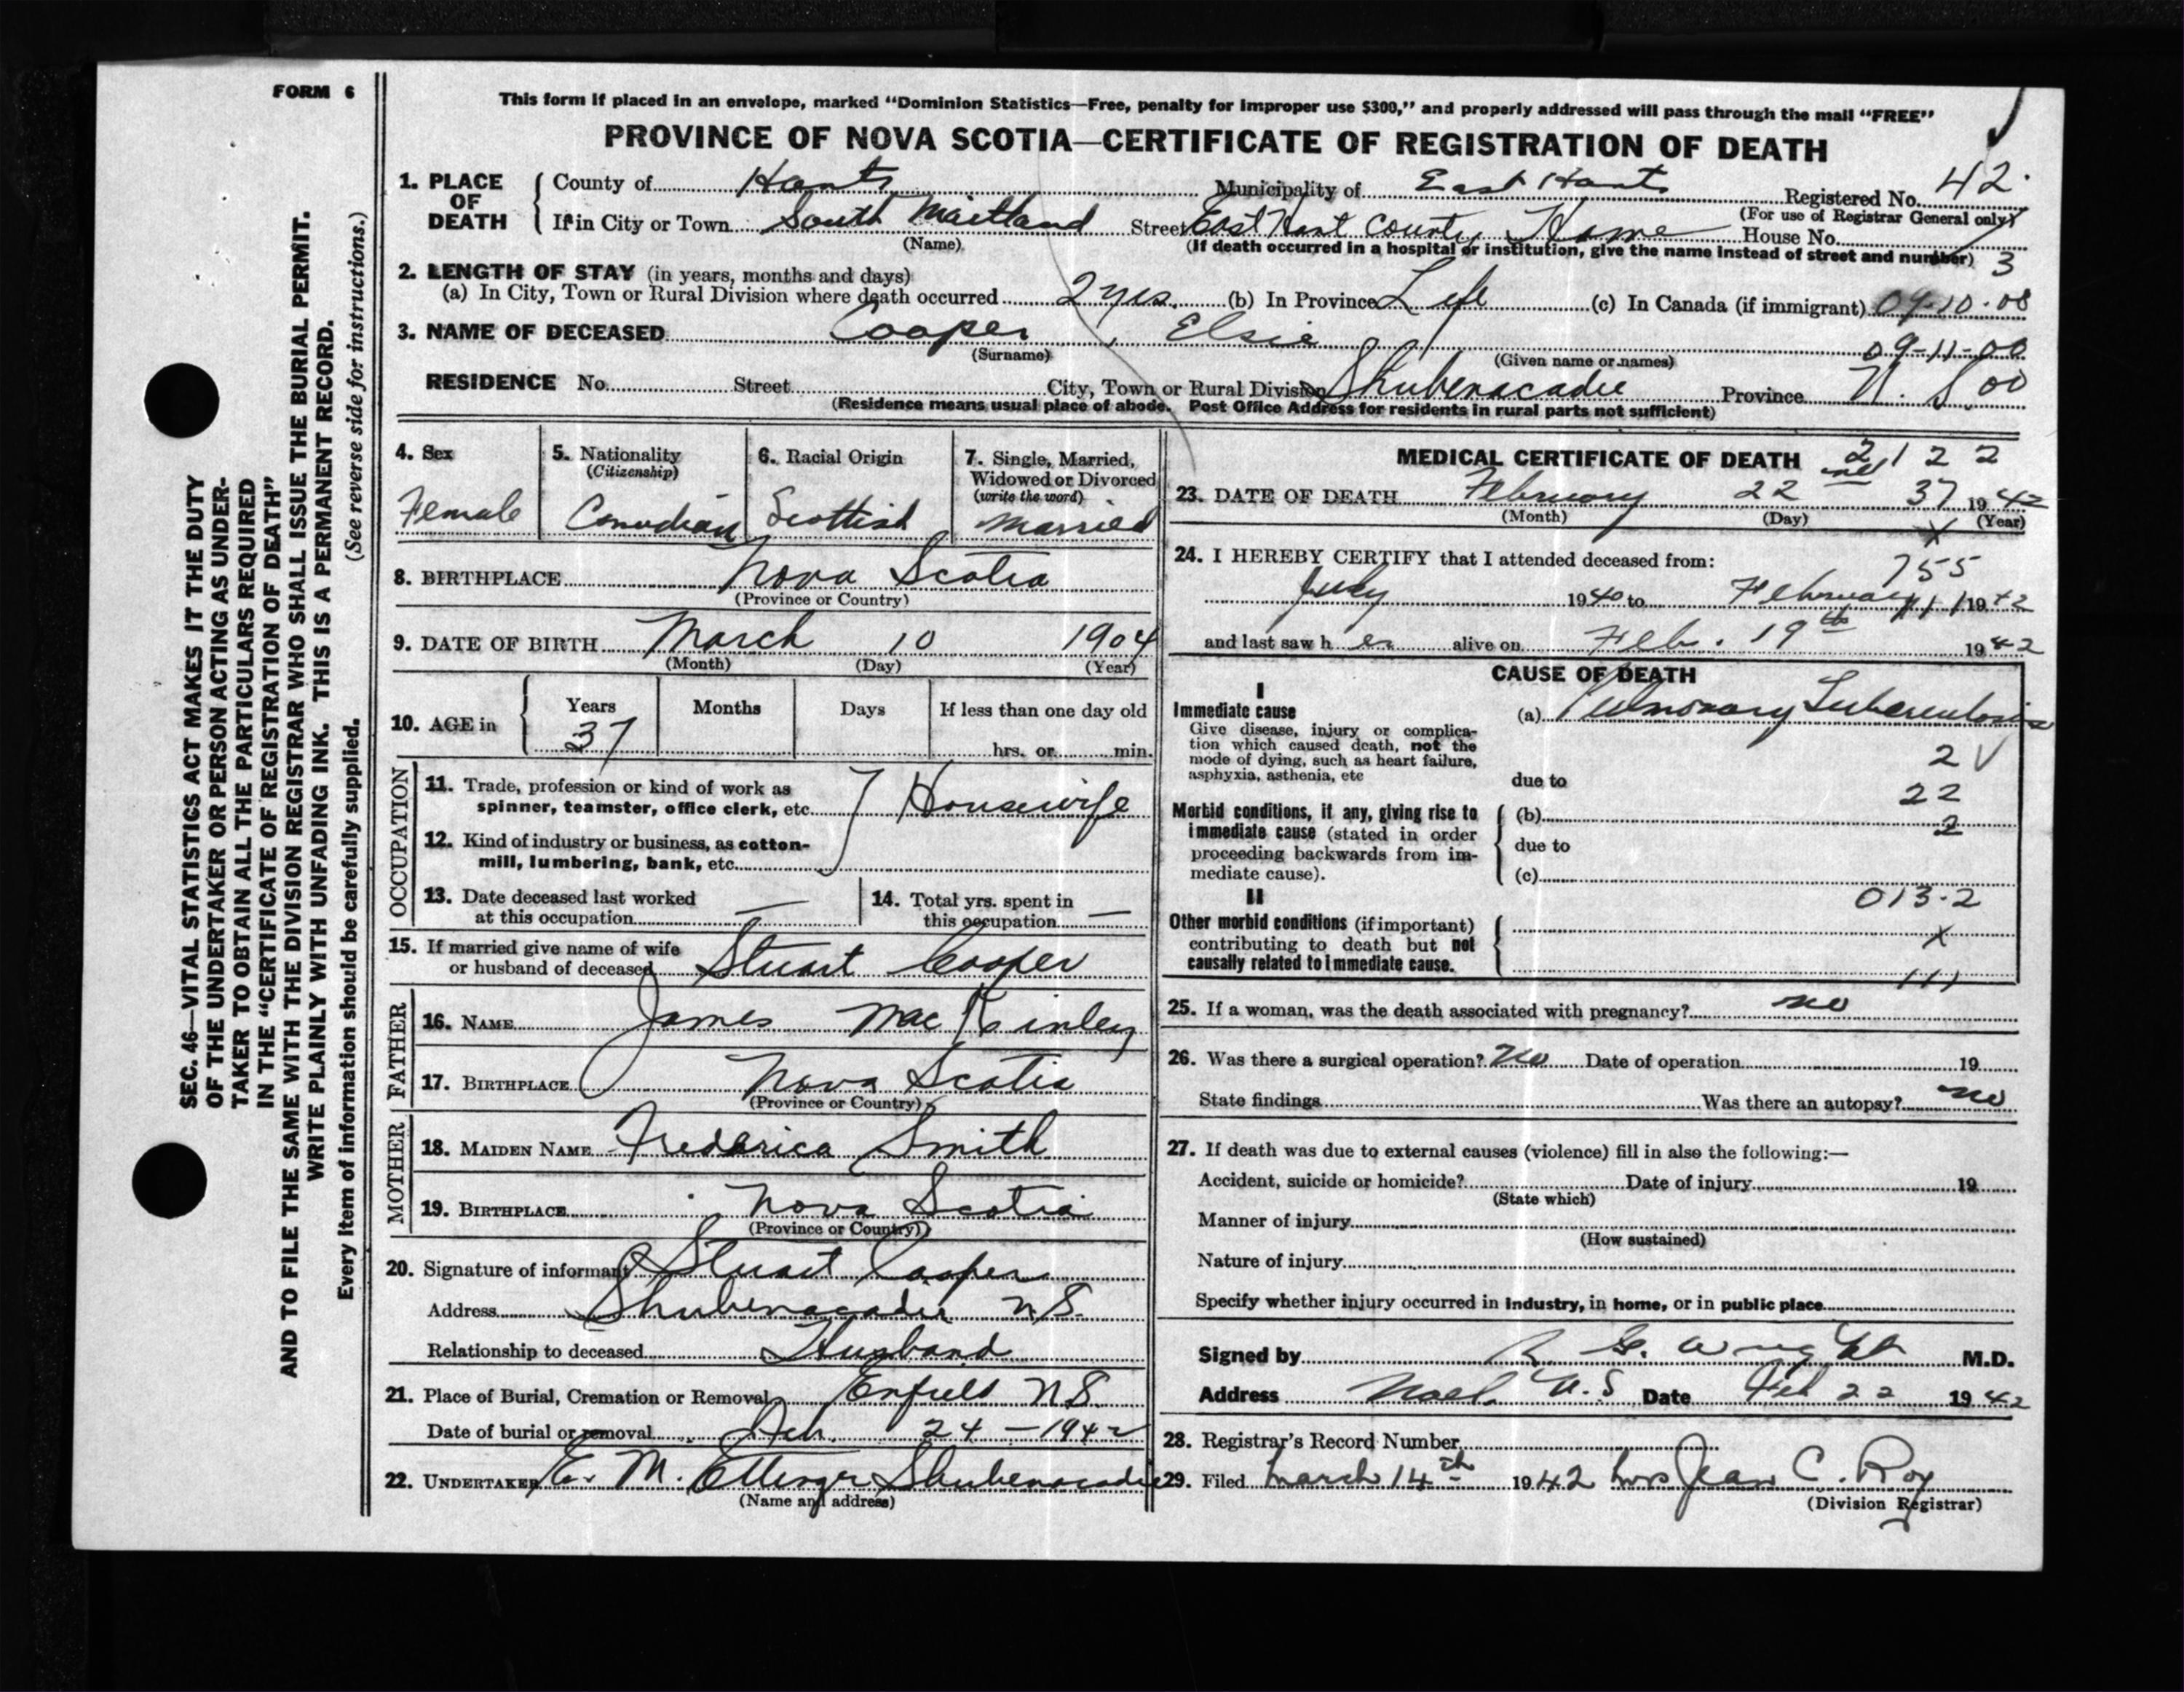 FORM 6
This form if placed in an envelope, marked "Dominion Statistics—Free, penalty for improper use $300," and properly addressed will pass through the mail "FREE"
PROVINCE OF NOVA SCOTIA—CERTIFICATE OF REGISTRATION OF DEATH
1. PLACE OF DEATH County of Hants Municipality of East Hants Registered No. 42.
(For use of Registrar General only)
If in City or Town South Maitland Street East Hant County Home House No.
(Name) (If death occurred in a hospital or institution, give the name instead of street and number) 3
2. LENGTH OF STAY (in years, months and days)
(a) In City, Town or Rural Division where death occurred 2 yrs. (b) In Province Life (c) In Canada (if immigrant) 09-10-08
3. NAME OF DECEASED Cooper, Elsie
(Surname) (Given name or names) 09-11-00
RESIDENCE No. Street City, Town or Rural Division Shubenacadie Province N. S. 00
(Residence means usual place of abode. Post Office Address for residents in rural parts not sufficient)
4. Sex 5. Nationality 6. Racial Origin 7. Single, Married,
(Citizenship) Widowed or Divorced
(write the word)
Female Canadian Scottish Married
8. BIRTHPLACE Nova Scotia
(Province or Country)
9. DATE OF BIRTH March 10 1904
(Month) (Day) (Year)
10. AGE in Years Months Days If less than one day old
37 hrs. or min.
OCCUPATION
11. Trade, profession or kind of work as
spinner, teamster, office clerk, etc. Housewife
12. Kind of industry or business, as cotton-
mill, lumbering, bank, etc.
13. Date deceased last worked 14. Total yrs. spent in
at this occupation — this occupation —
15. If married give name of wife
or husband of deceased Stuart Cooper
FATHER
16. NAME James MacKinley
17. BIRTHPLACE Nova Scotia
(Province or Country)
MOTHER
18. MAIDEN NAME Frederica Smith
19. BIRTHPLACE Nova Scotia
(Province or Country)
20. Signature of informant Stuart Cooper
Address Shubenacadie N.S.
Relationship to deceased Husband
21. Place of Burial, Cremation or Removal Enfield N.S.
Date of burial or removal Feb. 24 - 1942
22. UNDERTAKER E. M. Ettinger Shubenacadie
(Name and address)
MEDICAL CERTIFICATE OF DEATH 2 1 2 2
23. DATE OF DEATH February 22nd 37 1942
(Month) (Day) X (Year)
24. I HEREBY CERTIFY that I attended deceased from:
755
July 1940 to February 111 1942
and last saw her alive on Feb. 19th 1942
CAUSE OF DEATH
I
Immediate cause (a) Pulmonary Tuberculosis
Give disease, injury or complica-
tion which caused death, not the
mode of dying, such as heart failure,
asphyxia, asthenia, etc
2 V
due to
22
Morbid conditions, if any, giving rise to (b)
2
immediate cause (stated in order
proceeding backwards from im-
mediate cause).
due to
(c)
013.2
II
Other morbid conditions (if important)
contributing to death but not
causally related to immediate cause.
X
111
25. If a woman, was the death associated with pregnancy? no
26. Was there a surgical operation? No Date of operation 19
State findings Was there an autopsy? no
27. If death was due to external causes (violence) fill in also the following:—
Accident, suicide or homicide? Date of injury 19
(State which)
Manner of injury
(How sustained)
Nature of injury
Specify whether injury occurred in industry, in home, or in public place
Signed by R. G. Wright M.D.
Address Noel. N.S Date Feb 22 1942
28. Registrar's Record Number
29. Filed March 14th 1942 Mrs Jean C. Roy
(Division Registrar)
SEC. 46—VITAL STATISTICS ACT MAKES IT THE DUTY
OF THE UNDERTAKER OR PERSON ACTING AS UNDER-
TAKER TO OBTAIN ALL THE PARTICULARS REQUIRED
IN THE "CERTIFICATE OF REGISTRATION OF DEATH"
AND TO FILE THE SAME WITH THE DIVISION REGISTRAR WHO SHALL ISSUE THE BURIAL PERMIT.
WRITE PLAINLY WITH UNFADING INK. THIS IS A PERMANENT RECORD.
Every item of information should be carefully supplied. (See reverse side for instructions.)